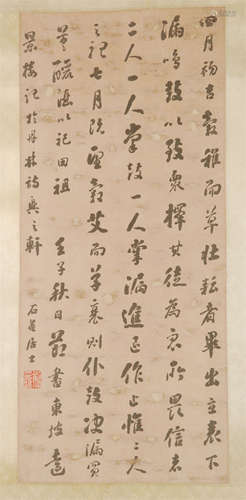 四月初吉穀稚而草壯耘者畢出立表下
漏鳴鼓以致衆擇其徒為衆所畏信者
二人一人掌鼓一人掌漏進退作止惟二人
之七月既望穀艾而草衰則仆鼓決漏買
羊以祀田祖 壬子秋日節書東坡遠
景樓記於林詩之軒 石居士